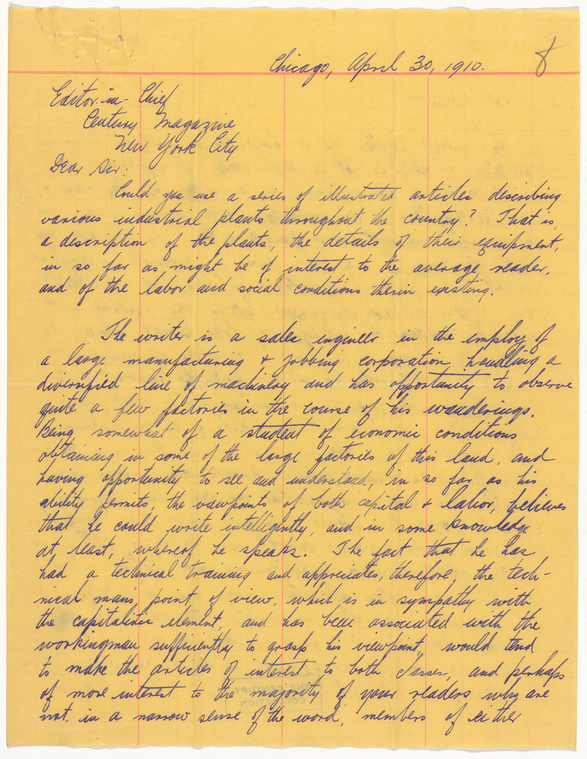 8
Chicago, April 30, 1910.
Editor-in-Chief
Century Magazine
New York City
Dear Sir:
Could you use a series of illustrated articles describing
various industrial plants throughout the country? That is,
a description of the plants, the details of their equipment,
in so far as might be of interest to the average reader,
and of the labor and social conditions therein existing.
The writer is a sales engineer in the employ of
a large manufacturing & jobbing corporation handling a
diversified line of machinery and has opportunity to observe
quite a few factories in the course of his wanderings.
Being somewhat of a student of economic conditions
obtaining in some of the large factories of this land, and
having opportunity to see and understand, in so far as his
ability permits, the viewpoints of both capital & labor, believes
that he could write intelligently, and in some knowledge
at least, whereof he speaks. The fact that he has
had a technical training and appreciates, therefore, the tech-
nical mans point of view, which is in sympathy with
the capitalistic element, and has been associated with the
workingman sufficiently to grasp his viewpoint, would tend
to make the articles of interest to both classes, and perhaps
of more interest to the majority of your readers why are
not, in a narrow sense of the word, members of either